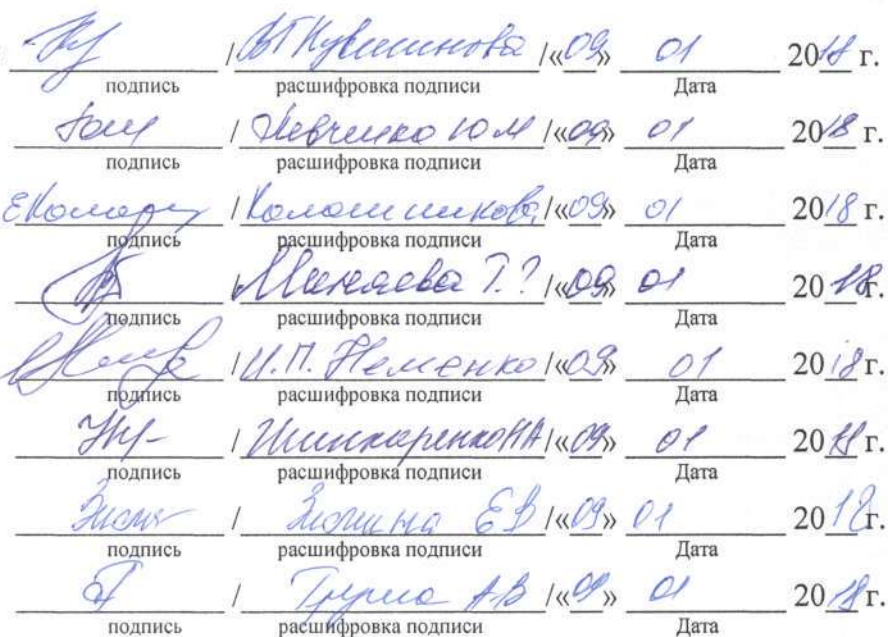 / В Г Кувшинова /«09» 01 2018 г.
подпись расшифровка подписи Дата
/ Левченко Ю М /«09» 01 2018 г.
подпись расшифровка подписи Дата
/ /«09» 01 2018 г.
подпись расшифровка подписи Дата
/ Минаева Т. /«09» 01 2018 г.
подпись расшифровка подписи Дата
/ И.П. Неменко /«09» 01 2018 г.
подпись расшифровка подписи Дата
/ Шинкаренко НА /«09» 01 2018 г.
подпись расшифровка подписи Дата
/ Е В /«09» 01 2018 г.
подпись расшифровка подписи Дата
/ А В /«09» 01 2018 г.
подпись расшифровка подписи Дата